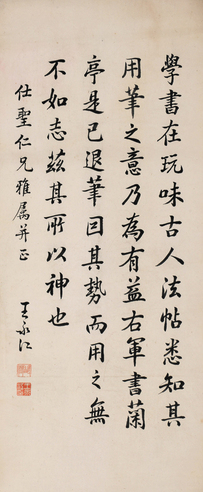 學書在玩味古人法帖悉知其
用筆之意乃為有益右軍書蘭
亭是已退筆因其勢而用之無
不如志茲其所以神也
仕聖仁兄雅屬并正
王永江